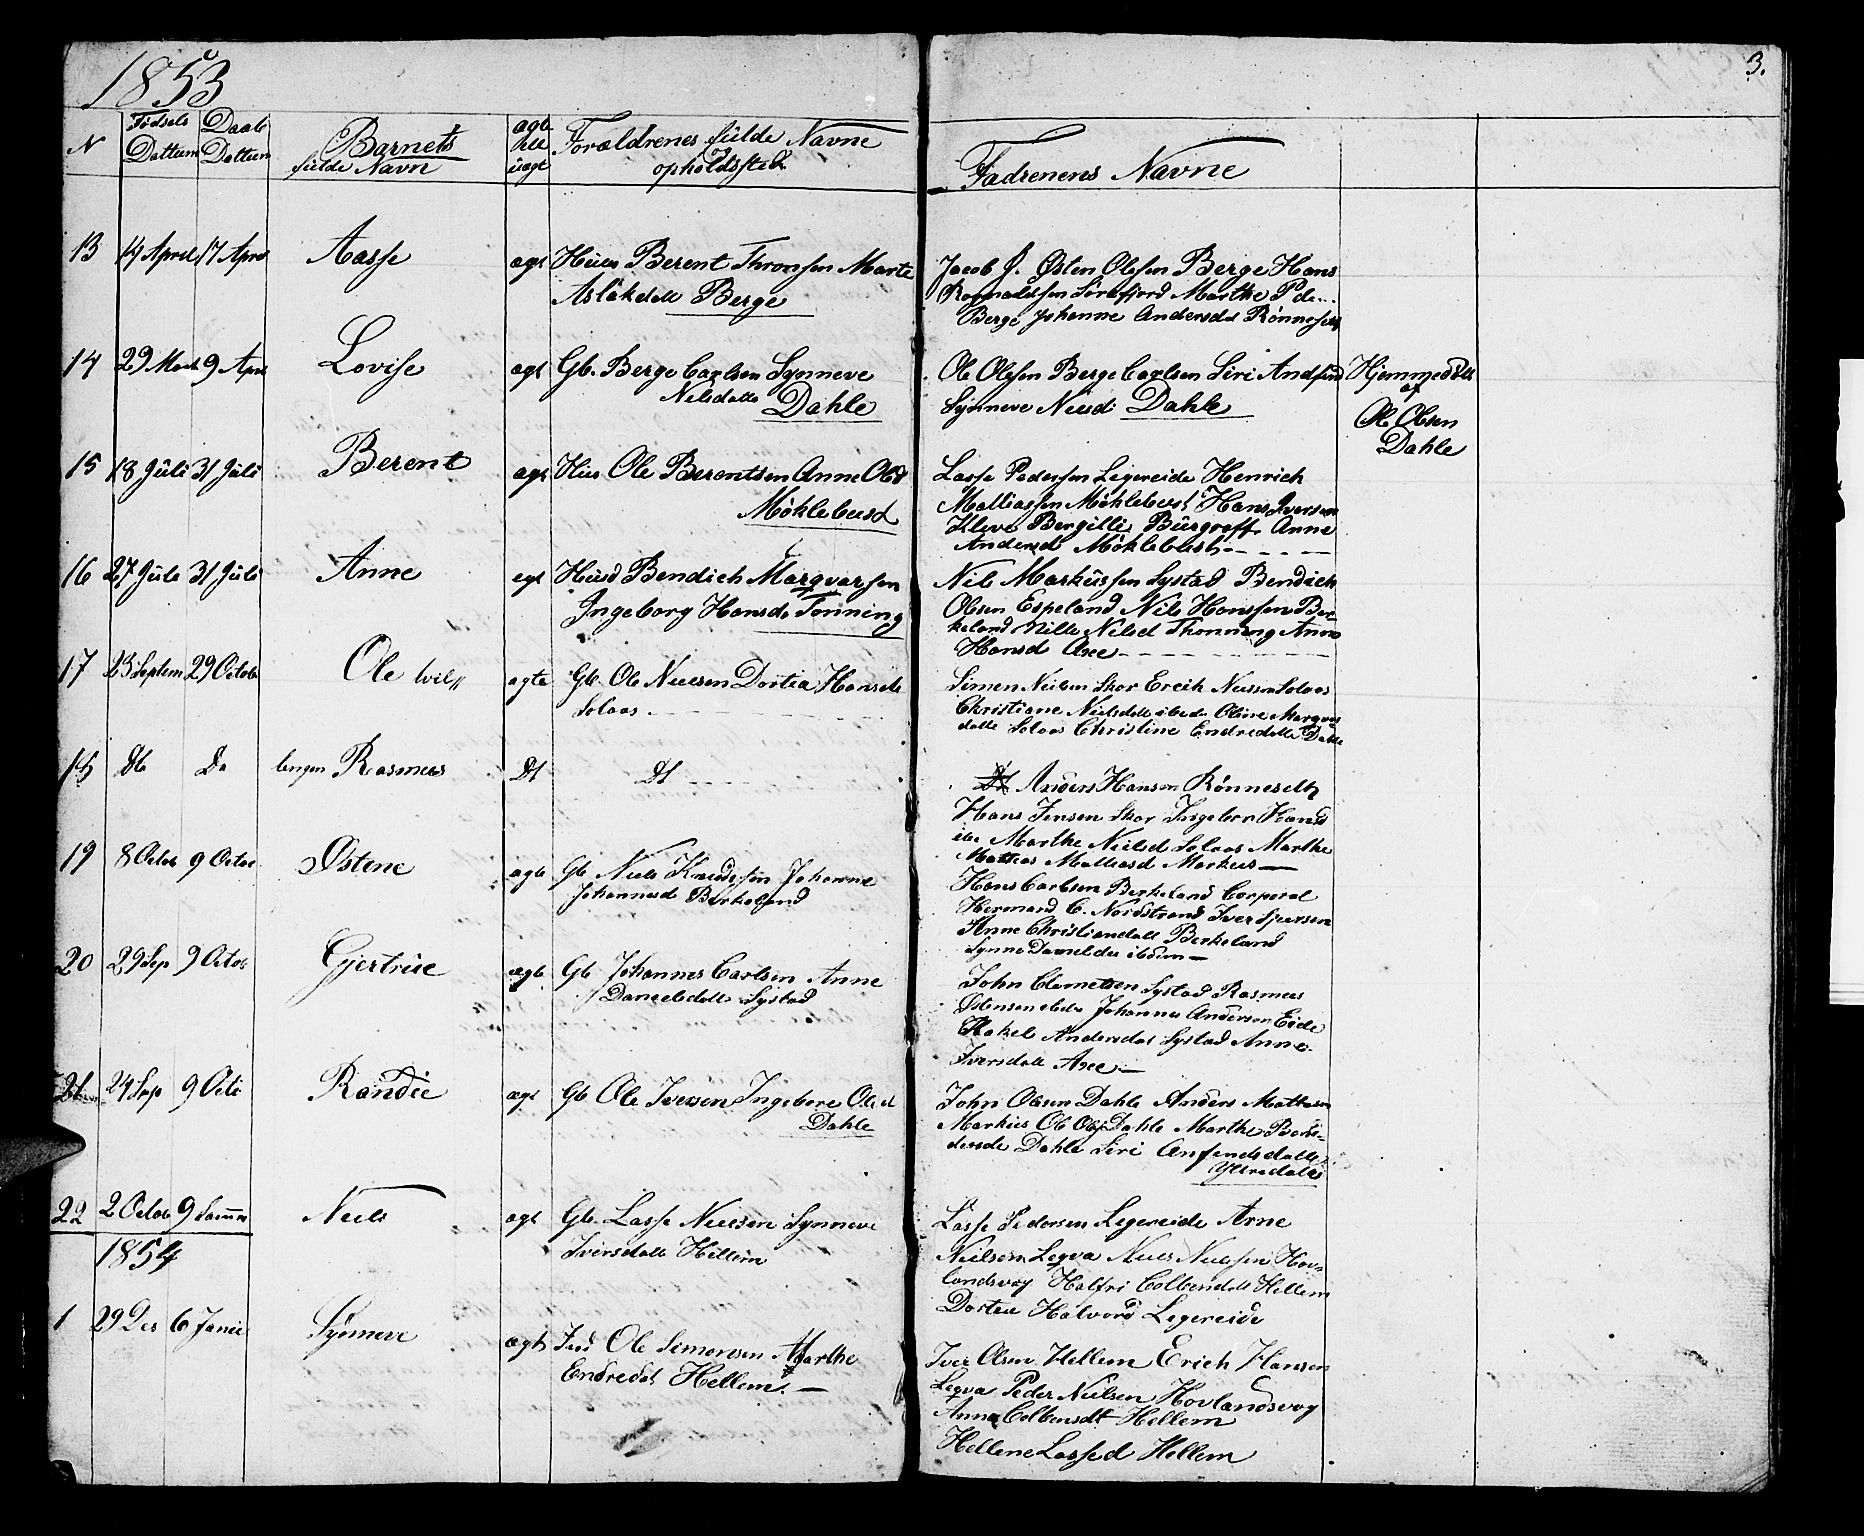 1853
3.
N Fødsels Dattum Daab Dattum Barnets fulde Navn ægte elle uægt Forældrenes fulde Navne opholdssted Fadrenens Navne
13 14 April 17 April Aasse ægt Huus Berent Thronsen Marte
Aslakdatt Berge
Jacob J. Østen Olssen Berge Hans
Sørefjord Marthe
Berge Johanne Andersdt Rønneset
14 29 Mart 9 Apri Lovise ægt Gb. Berge Carlsen Synneve
Nilsdatte Dahle
Ole Olssen Berge Carlsen Siri
Synneve Nilsd Dahle
Hjemmedøbt
af
Ole Olsen
Dahle
15 18 Juli 31 Juli Berent ægt Huus Ole Berentsen Anne Olsd
Møklebust
Lasse Pederssen Legereide Henrich
Mattiassen Møklebust Hans Iversen
Kleve Bergitte Anne
Andersd Møklebust
16 27 Jule 31 Juli Anne egt Husd Bendich Marqvarsen
Ingeborg Hansd Tonning
Nils Markussen Systad Bendich
Olsen Espeland Nils Hanssen Ber-
keland Nille Nilsd Thonning Anne
Hansd Axe
17 23 Septem 29 Octob Ole tvil ægte Gb. Ole Nielsen Dortea Hansdt
Solaas
Simen Nielsen Skor Erich Nielsen Solaas
Christiane Nielsdatt ibede Oline
datt Solaas Christine Endredatte Dahle
18 Do Do lingen Rasmus Dt Dt
Anders Hansen Rønneseth
Hans Jensen Skor Ingebor Hansd
ibe Marthe Nielsd Solaas Marthe
Mattiasd Markus
19 8 Octob 9 Octob Østene ægte Gb Niels Knudssen Johanne
Johannesd Berkeland
Hans Carlsen Berkeland Corporal
Hermand C. Nordstrand Iver Sjursen
Anne Christiandatt Berkeland
Synne ibdum
20 29 Sep 9 Octob Gjertrue ægte Gb Johannes Carlsen Anne
Danielsdatt Systad
John Clemetsen Systad Rasmus
Østensen Johannes Andersen Eide
Rakel Andersdat Systad Anne
Iversdatt Axe
21 24 Sep 9 Octo Randie ægt Gb Ole Iversen Ingebore Olsd
Dahle
John Olsen Dahle Anders Mathisen
Markus Ole Dahle Marthe
Dahle Siri Anfendsdatte
Ytredale
22 2 Octob 9 Samme Niels ægt Gb. Lasse Nielsen Synneve
Iversdatt Hellem
Lasse Pedersen Legereide Arne
Nielsen Leqva Niels Nielssen Hov-
landsvog Halfri Colbendatt Hellem
Dortea Halvord Legereide
1854
1 29 Des 6 Janu Synneve ægt Ole Simonsen Marthe
Endredat Hellem
Iver Olsen Hellem Erich Hansen
Leqva Peder Nielsen Hovlandsvog
Anna Colbensdt Hellem
Hellene Lassed Hellem